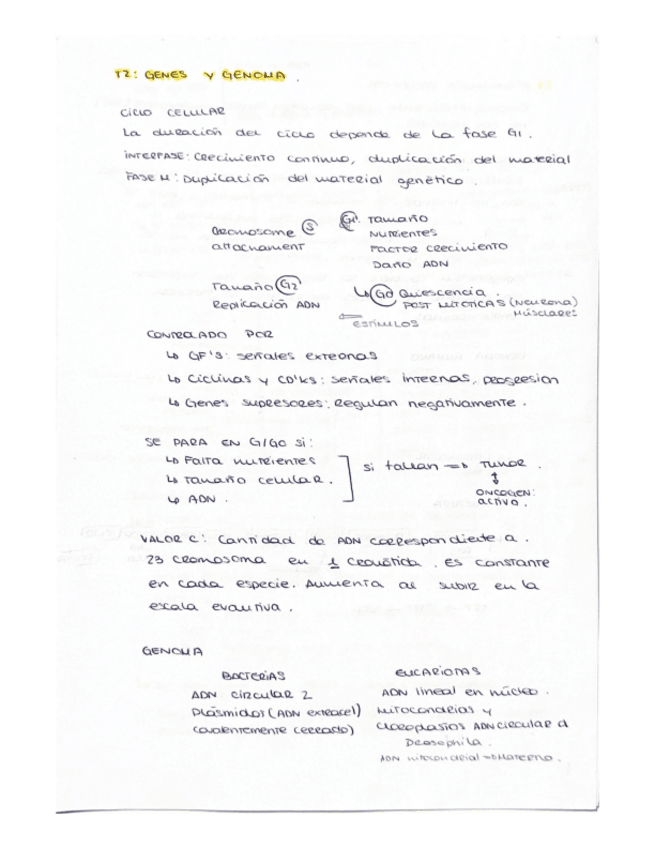 T2: GENES Y GENOMA.
CICLO CELULAR
La duración del ciclo depende de la fase G1.
INTERFASE: Crecimiento continuo, duplicación del material
FASE M: Duplicación del material genético.
Cromosome S
attachament
G1. Tamaño
Nutrientes
Factor crecimiento
Daño ADN
Tamaño G2
Replicación ADN
↳ G0 Quiescencia.
POST MITOTICAS (Neurona)
Músclares
⇐ ESTÍMULOS
CONTROLADO POR
↳ GF's: señales externas
↳ Ciclinas y CD'Ks: señales internas, progresion
↳ Genes supresores: Regulan negativamente.
SE PARA EN G1/G0 si:
↳ Falta nutrientes
↳ Tamaño celular.
↳ ADN.
si fallan => TUMOR.
↕
ONCOGEN:
activo.
VALOR C: Cantidad de ADN correspondiente a.
23 cromosoma en 1 . Es constante
en cada especie. Aumenta al subir en la
escala evolutiva.
GENOMA
BACTERIAS
ADN circular 2
Plásmidos (ADN extracel)
covalentemente cerrado)
EUCARIOTAS
ADN lineal en núcleo.
Mitocondrias y
cloroplastos ADN circular d
Drosophila.
ADN mitocondrial => Materno.